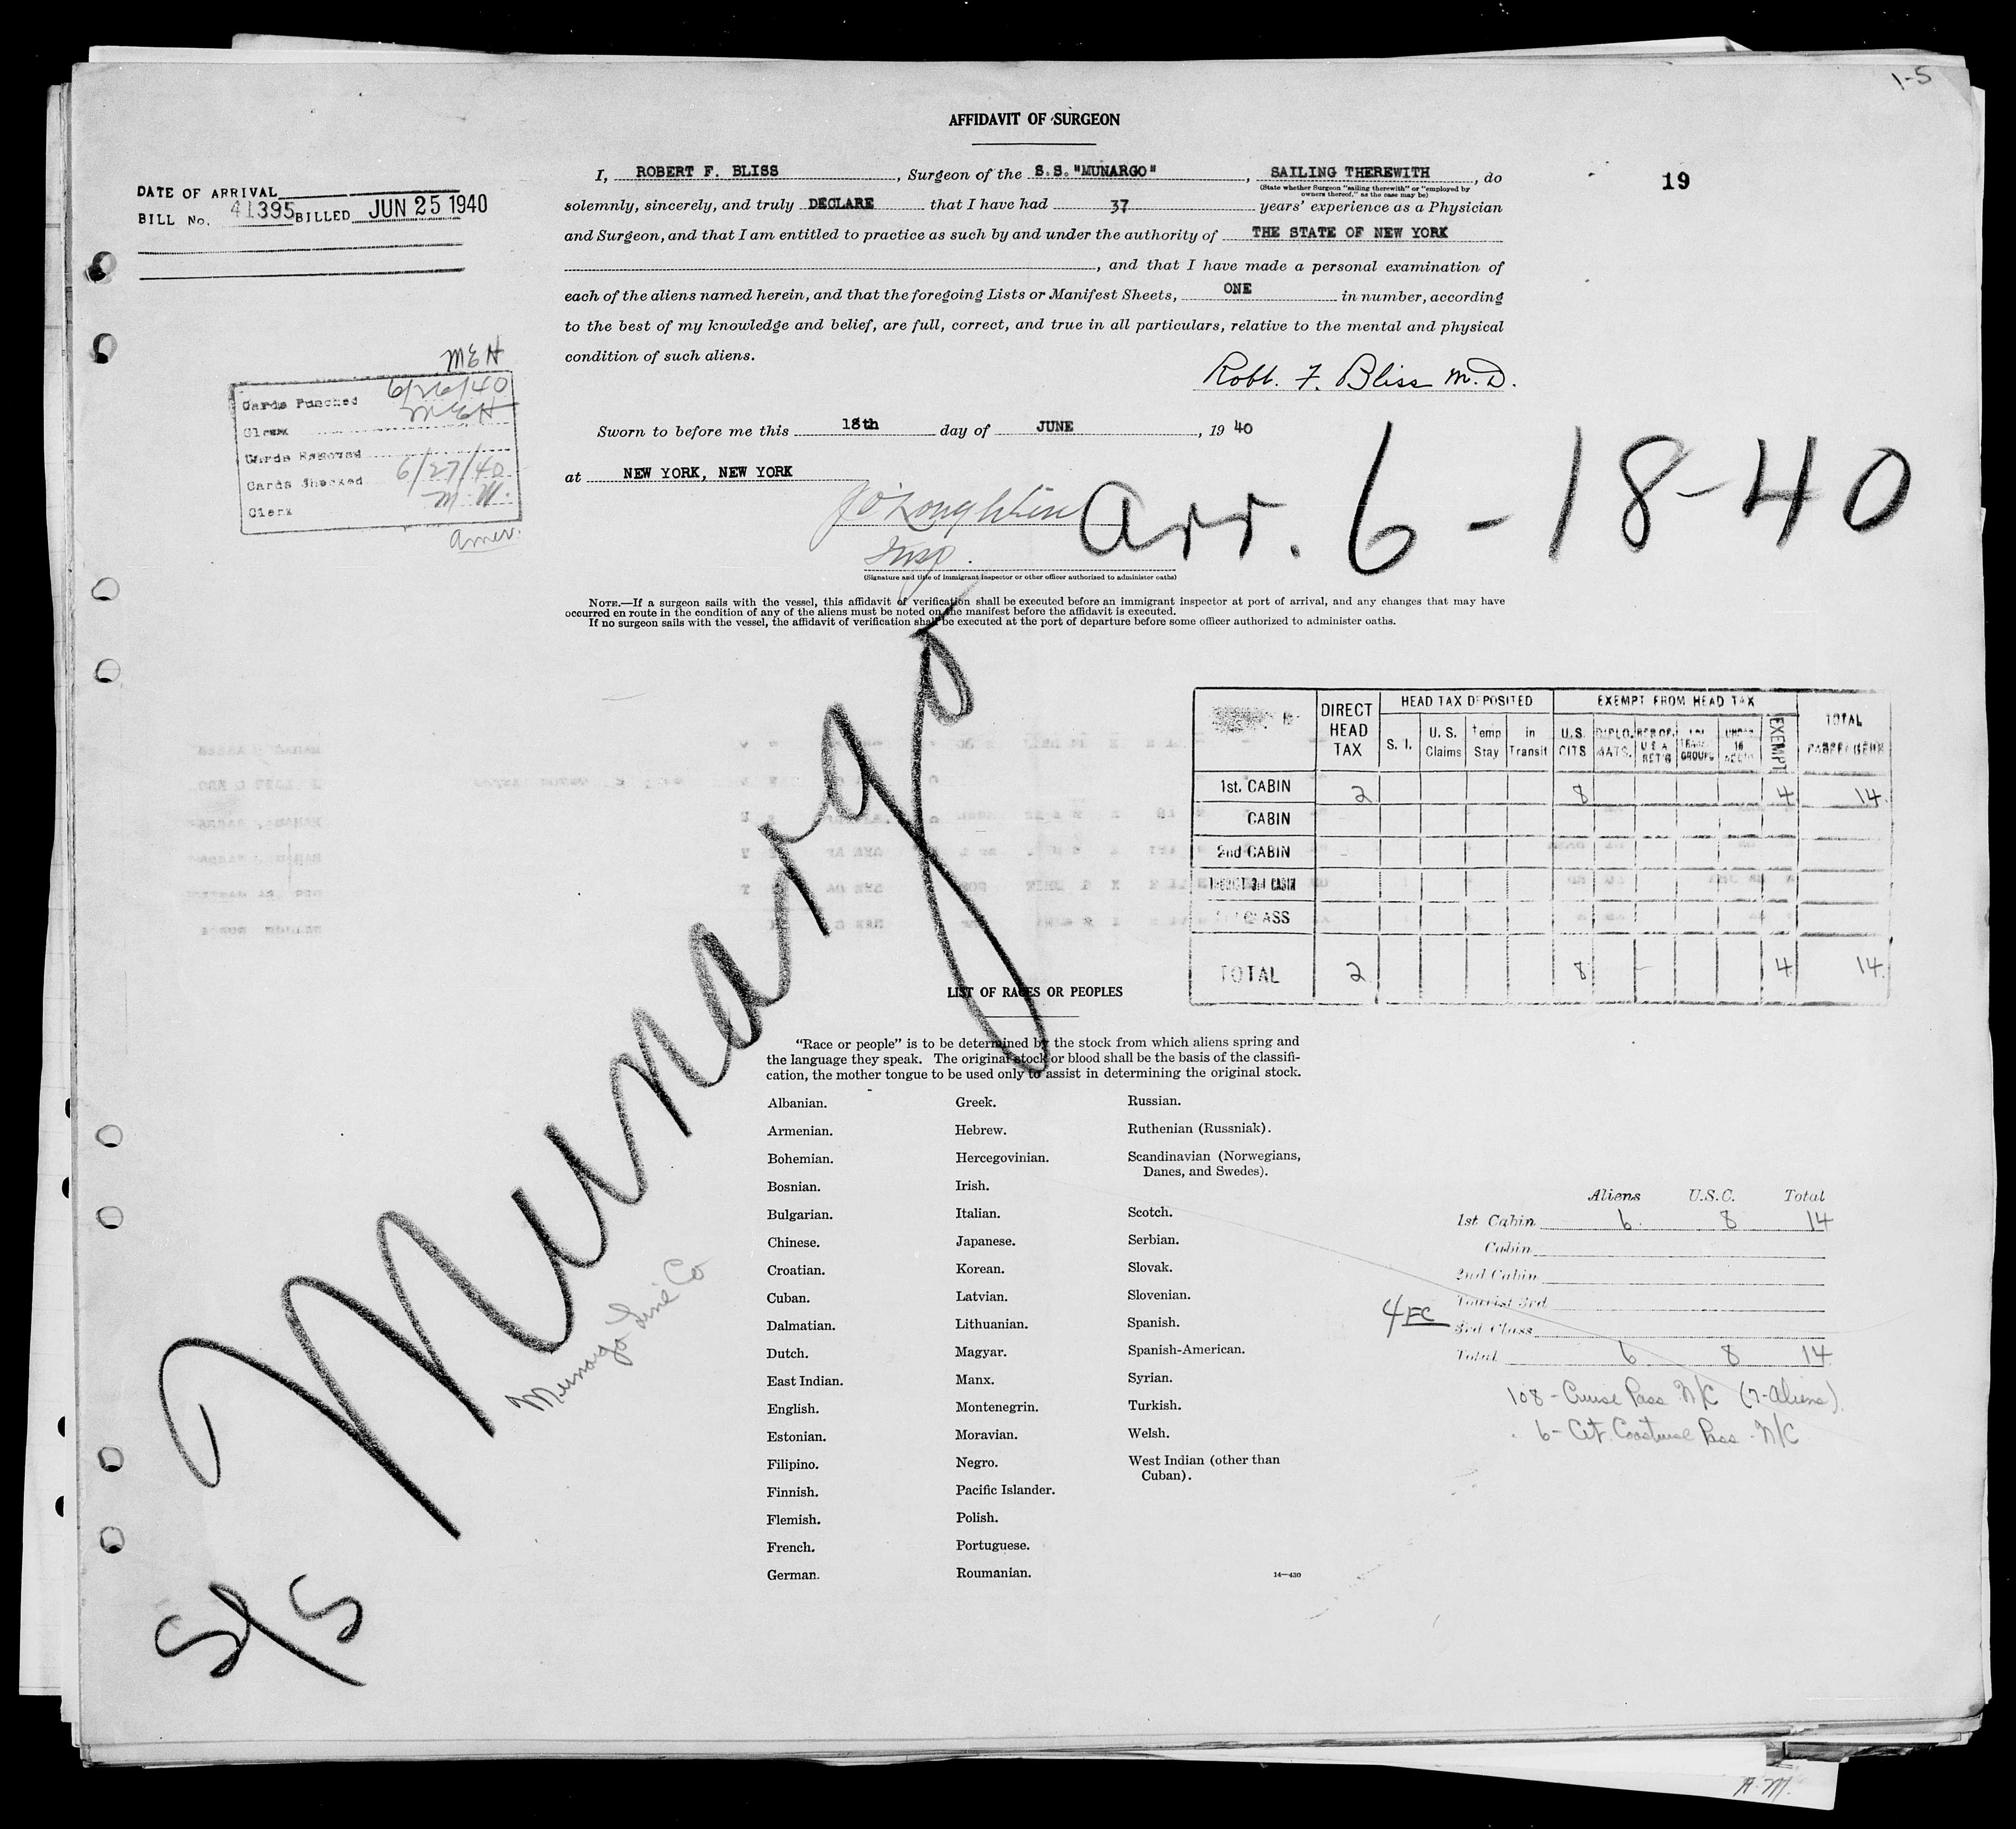 1-5
AFFIDAVIT OF SURGEON
19
I, ROBERT F. BLISS, Surgeon of the S.S. "MUNARGO", SAILING THEREWITH, do
(State whether Surgeon "sailing therewith" or "employed by
owners thereof," as the case may be)
solemnly, sincerely, and truly DECLARE that I have had 37 years' experience as a Physician
and Surgeon, and that I am entitled to practice as such by and under the authority of THE STATE OF NEW YORK
, and that I have made a personal examination of
each of the aliens named herein, and that the foregoing Lists or Manifest Sheets, ONE in number, according
to the best of my knowledge and belief, are full, correct, and true in all particulars, relative to the mental and physical
condition of such aliens.
Robt. F. Bliss M.D.
Sworn to before me this 18th day of JUNE, 19 40
at NEW YORK, NEW YORK
J O'Loughlin
Insp.
(Signature and title of immigrant inspector or other officer authorized to administer oaths)
Arr. 6-18-40
DATE OF ARRIVAL
BILL No. 41395 BILLED JUN 25 1940
MEH
Cards Punched 6/26/40
Clerk MEH
Cards Removed
Cards Checked 6/27/40
Clerk M.M.
Amer.
NOTE.—If a surgeon sails with the vessel, this affidavit of verification shall be executed before an immigrant inspector at port of arrival, and any changes that may have
occurred en route in the condition of any of the aliens must be noted on the manifest before the affidavit is executed.
If no surgeon sails with the vessel, the affidavit of verification shall be executed at the port of departure before some officer authorized to administer oaths.
DIRECT HEAD TAX HEAD TAX DEPOSITED EXEMPT FROM HEAD TAX TOTAL PASSENGERS
S. I. U. S. Claims Temp Stay in Transit U.S. CITS DIPLO. MATS. RES OF U S A RET'G EXEMPT
1st. CABIN 2 8 4 14
CABIN
2nd CABIN
TOURIST 3rd CABIN
CLASS
TOTAL 2 8 4 14
LIST OF RACES OR PEOPLES
"Race or people" is to be determined by the stock from which aliens spring and
the language they speak. The original stock or blood shall be the basis of the classifi-
cation, the mother tongue to be used only to assist in determining the original stock.
Albanian.
Armenian.
Bohemian.
Bosnian.
Bulgarian.
Chinese.
Croatian.
Cuban.
Dalmatian.
Dutch.
East Indian.
English.
Estonian.
Filipino.
Finnish.
Flemish.
French.
German.
Greek.
Hebrew.
Hercegovinian.
Irish.
Italian.
Japanese.
Korean.
Latvian.
Lithuanian.
Magyar.
Manx.
Montenegrin.
Moravian.
Negro.
Pacific Islander.
Polish.
Portuguese.
Roumanian.
Russian.
Ruthenian (Russniak).
Scandinavian (Norwegians,
Danes, and Swedes).
Scotch.
Serbian.
Slovak.
Slovenian.
Spanish.
Spanish-American.
Syrian.
Turkish.
Welsh.
West Indian (other than
Cuban).
14—430
Aliens U.S.C. Total
1st Cabin 6 8 14
Cabin
2nd Cabin
Tourist 3rd
3rd Class
Total 6 8 14
4 FC
108 - Cruise Pass N/C (7-Aliens)
6 - Cit. Coastwise Pass - N/C
S/S
Munargo
Munargo Line Co
A.M.